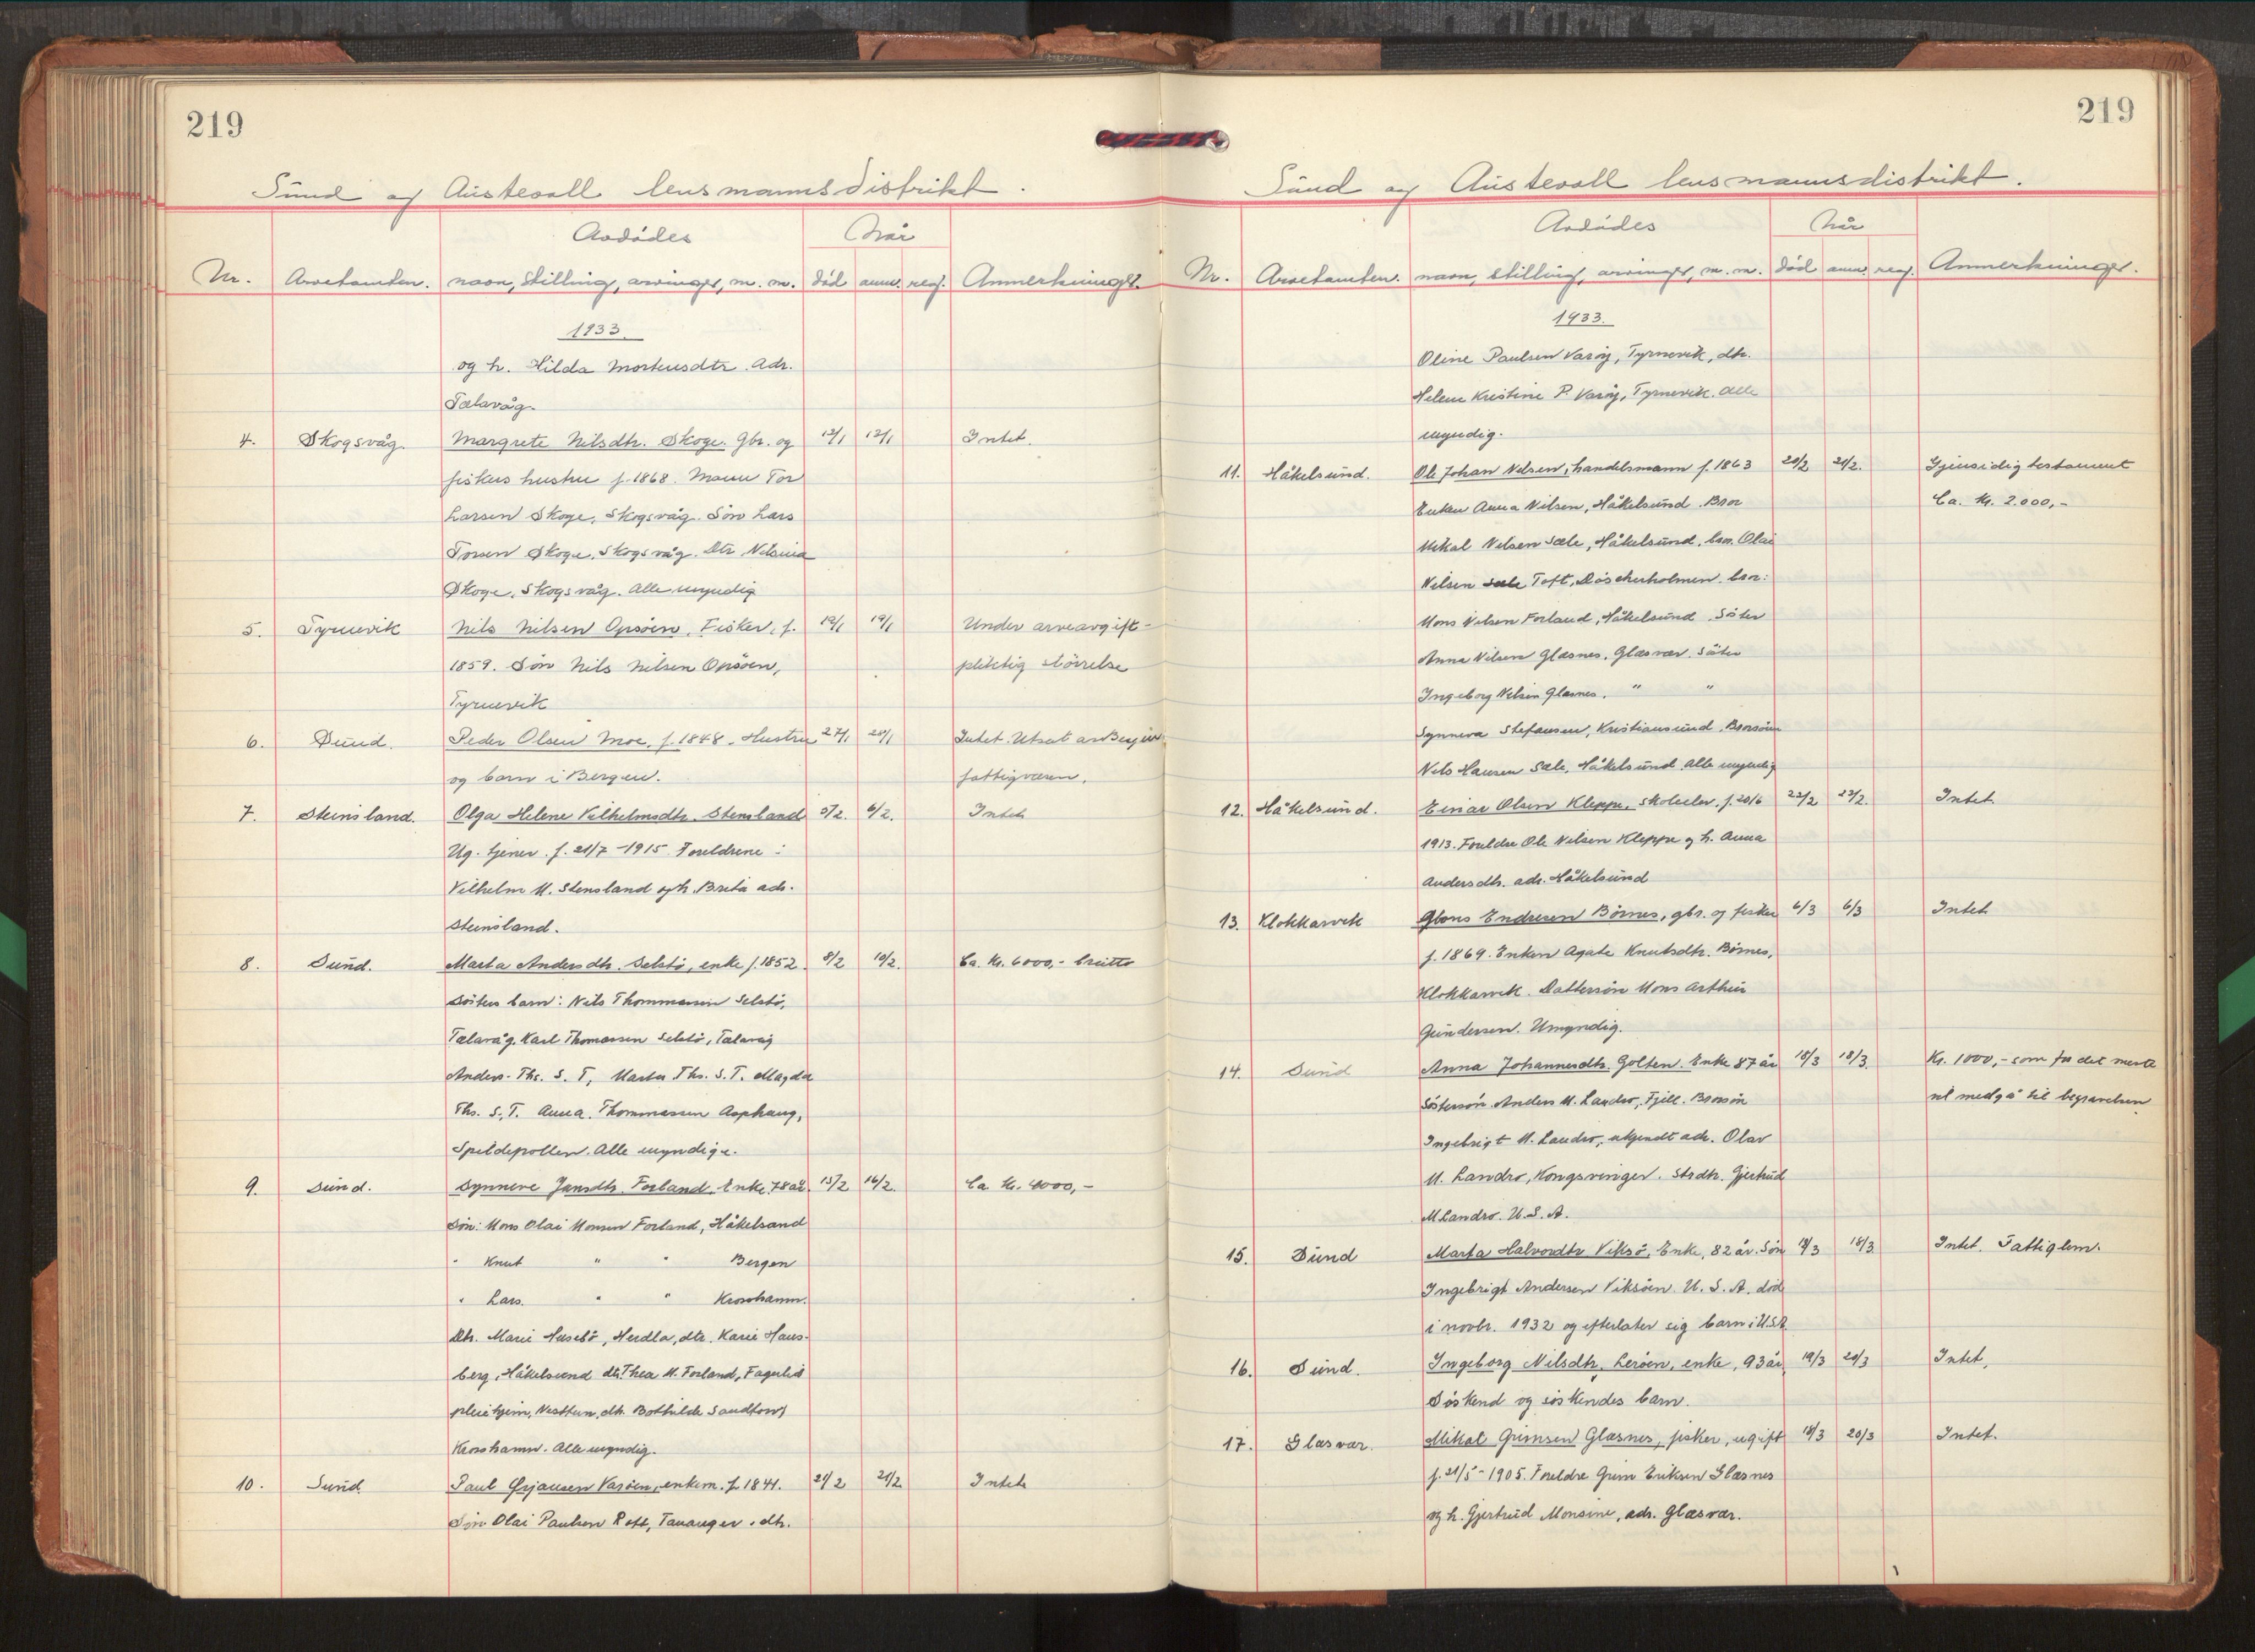 219
Sund og Austevoll lensmannsdistrikt.
Avdødes
Når
Nr. Arvetomten. navn, stilling, arvinger, m. m. død anm. reg. Anmerkninger.
1933.
og h. Hilda Mortensdtr. Adr.
Telavåg.
4. Skogsvåg. Margrete Nilsdtr. Skoge. Gbr. og 12/1 12/1 Intet.
fiskers hustru f. 1868. Mann Tor
Larsen Skoge, Skogsvåg. Søn Lars
Torsen Skoge, Skogsvåg. Dtr. Nilsina
Skoge, Skogsvåg. Alle myndig
5. Tyrnevik Nils Nilsen Opsøen, Fisker, f. 19/1 Under arveavgift-
1859. Søn Nils Nilsen Opsøen, pliktig størrelse
Tyrnevik
6. Sund. Peder Olsen Moe, f. 1848. Hustru 27/1 28/1 Intet. Utsat av Bergen
og barn i Bergen. fattigvesen.
7. Steinsland. Olga Helene Vilhelmsdtr. Stensland 5/2. 6/2. Intet
Ug. tjener. f. 21/7-1915. Foreldrene:
Vilhelm M. Stensland og h. Brita adr.
Steinsland.
8. Sund. Marta Andersdtr. Selstø, enke f. 1852. 8/2 10/2. Ca. Kr. 6000,- brutto
Søsters barn: Nils Thommassen Selstø,
Telavåg. Karl Thomassen Selstø, Telavåg
Anders Ths. S. T, Marta Ths. S. T. Magda
Ths. S., T. Anna Thommassen Asphaug,
Speldepollen. Alle myndige.
9. Sund. Synneve Jansdtr. Forland. Enke, 78 år. 15/2 16/2. Ca. Kr. 4000,-
Søn: Mons Olai Monsen Forland, Håkelsund
" Knut " " Bergen
" Lars. " " Krosshamn.
Dtr. Marie Husebø, Herdla, dtr. Karie Haus-
berg, Håkelsund dtr. Thea M. Forland, Fagerlid
pleiehjem, Nesttun, dtr. Bothilde Sandtorv
Krosshamn. Alle myndig.
10. Sund. Paul Ørjansen Varøen, enkem. f. 1841. 21/2 21/2. Intet
Søn Olai Paulsen Roth, Tananger. dtr.
219
Sund og Austevoll lensmannsdistrikt.
Avdødes
Når
Nr. Arvetomten. navn, stilling, arvinger, m. m. død anm. reg. Anmerkninger.
1933.
Oline Paulsen Varøy, Tyrnevik, dtr.
Helene Kristine P. Varøy, Tyrnevik. Alle
myndig.
11. Håkelsund. Ole Johan Nilsen, handelsmann f. 1863 20/2 21/2. Gjensidig testament
Enken Anna Nilsen, Håkelsund. Bror Ca. Kr. 2.000,-
Mikal Nilsen Sæle, Håkelsund, bror. Olai
Nilsen Sæle Toft, bror:
Mons Nilsen Forland, Håkelsund. Søster
Anna Nilsen Glæsnes, Glæsvær. Søster
Ingeborg Nilsen Glæsnes. " "
Synneva Stefansen, Kristiansund. Brorsønn
Nils Hansen Sæle, Håkelsund Alle myndig
12. Håkelsund. Einar Olsen Kleppe, skoleelev. f. 20/6 22/2 23/2. Intet.
1913. Foreldre Ole Nilsen Kleppe og h. Anna
Andersdtr. adr. Håkelsund
13. Klokkarvik Endresen Børnes, gbr. og fisker 6/3 6/3 Intet
f. 1869. Enken Agate Knutsdtr. Børnes,
Klokkarvik. Dattersøn Mons Arthur
Gundersen. Umyndig.
14. Sund Anna Johannesdtr. Golten. Enke 87 år 18/3 18/3. Kr. 1000,- som for det meste
Søstersøn Anders M. Landro, Fjell. Brorsøn vil medgå til begravelsen
Ingebrigt M. Landro, ukjendt adr. Olav
M. Landro, Kongsvinger. Stsdtr. Gjertrud
M Landro. U.S.A.
15. Sund Marta Halvordtr Viksø, Enke, 82 år. Søn 18/3. Intet. Fattiglem.
Ingebrigt Andersen Viksøen U. S. A. død
i novbr. 1932 og efterlater sig barn i U.S.A.
16. Sund. Ingeborg Nilsdtr. Lerøen, enke, 93 år, 19/3 20/3 Intet.
Søskend og søskendes barn.
17. Glæsvær. Mikal Grimsen Glæsnes, fisker, ugift 18/3 20/3 Intet.
f. 21/5-1905. Foreldre Grim Eriksen Glæsnes
og h. Gjertrud Monsine, adr. Glæsvær.